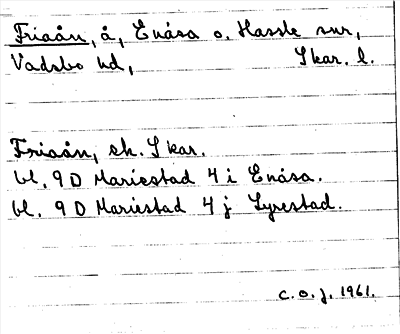 Friaån, å, Enåsa o. Hassle snr,
Vadsbo hd, Skar. l.
Friaån, ek. Skar.
bl. 9D Mariestad 4 i Enåsa.
bl. 9D Mariestad 4 j Lyrestad.
C.O.J. 1961.